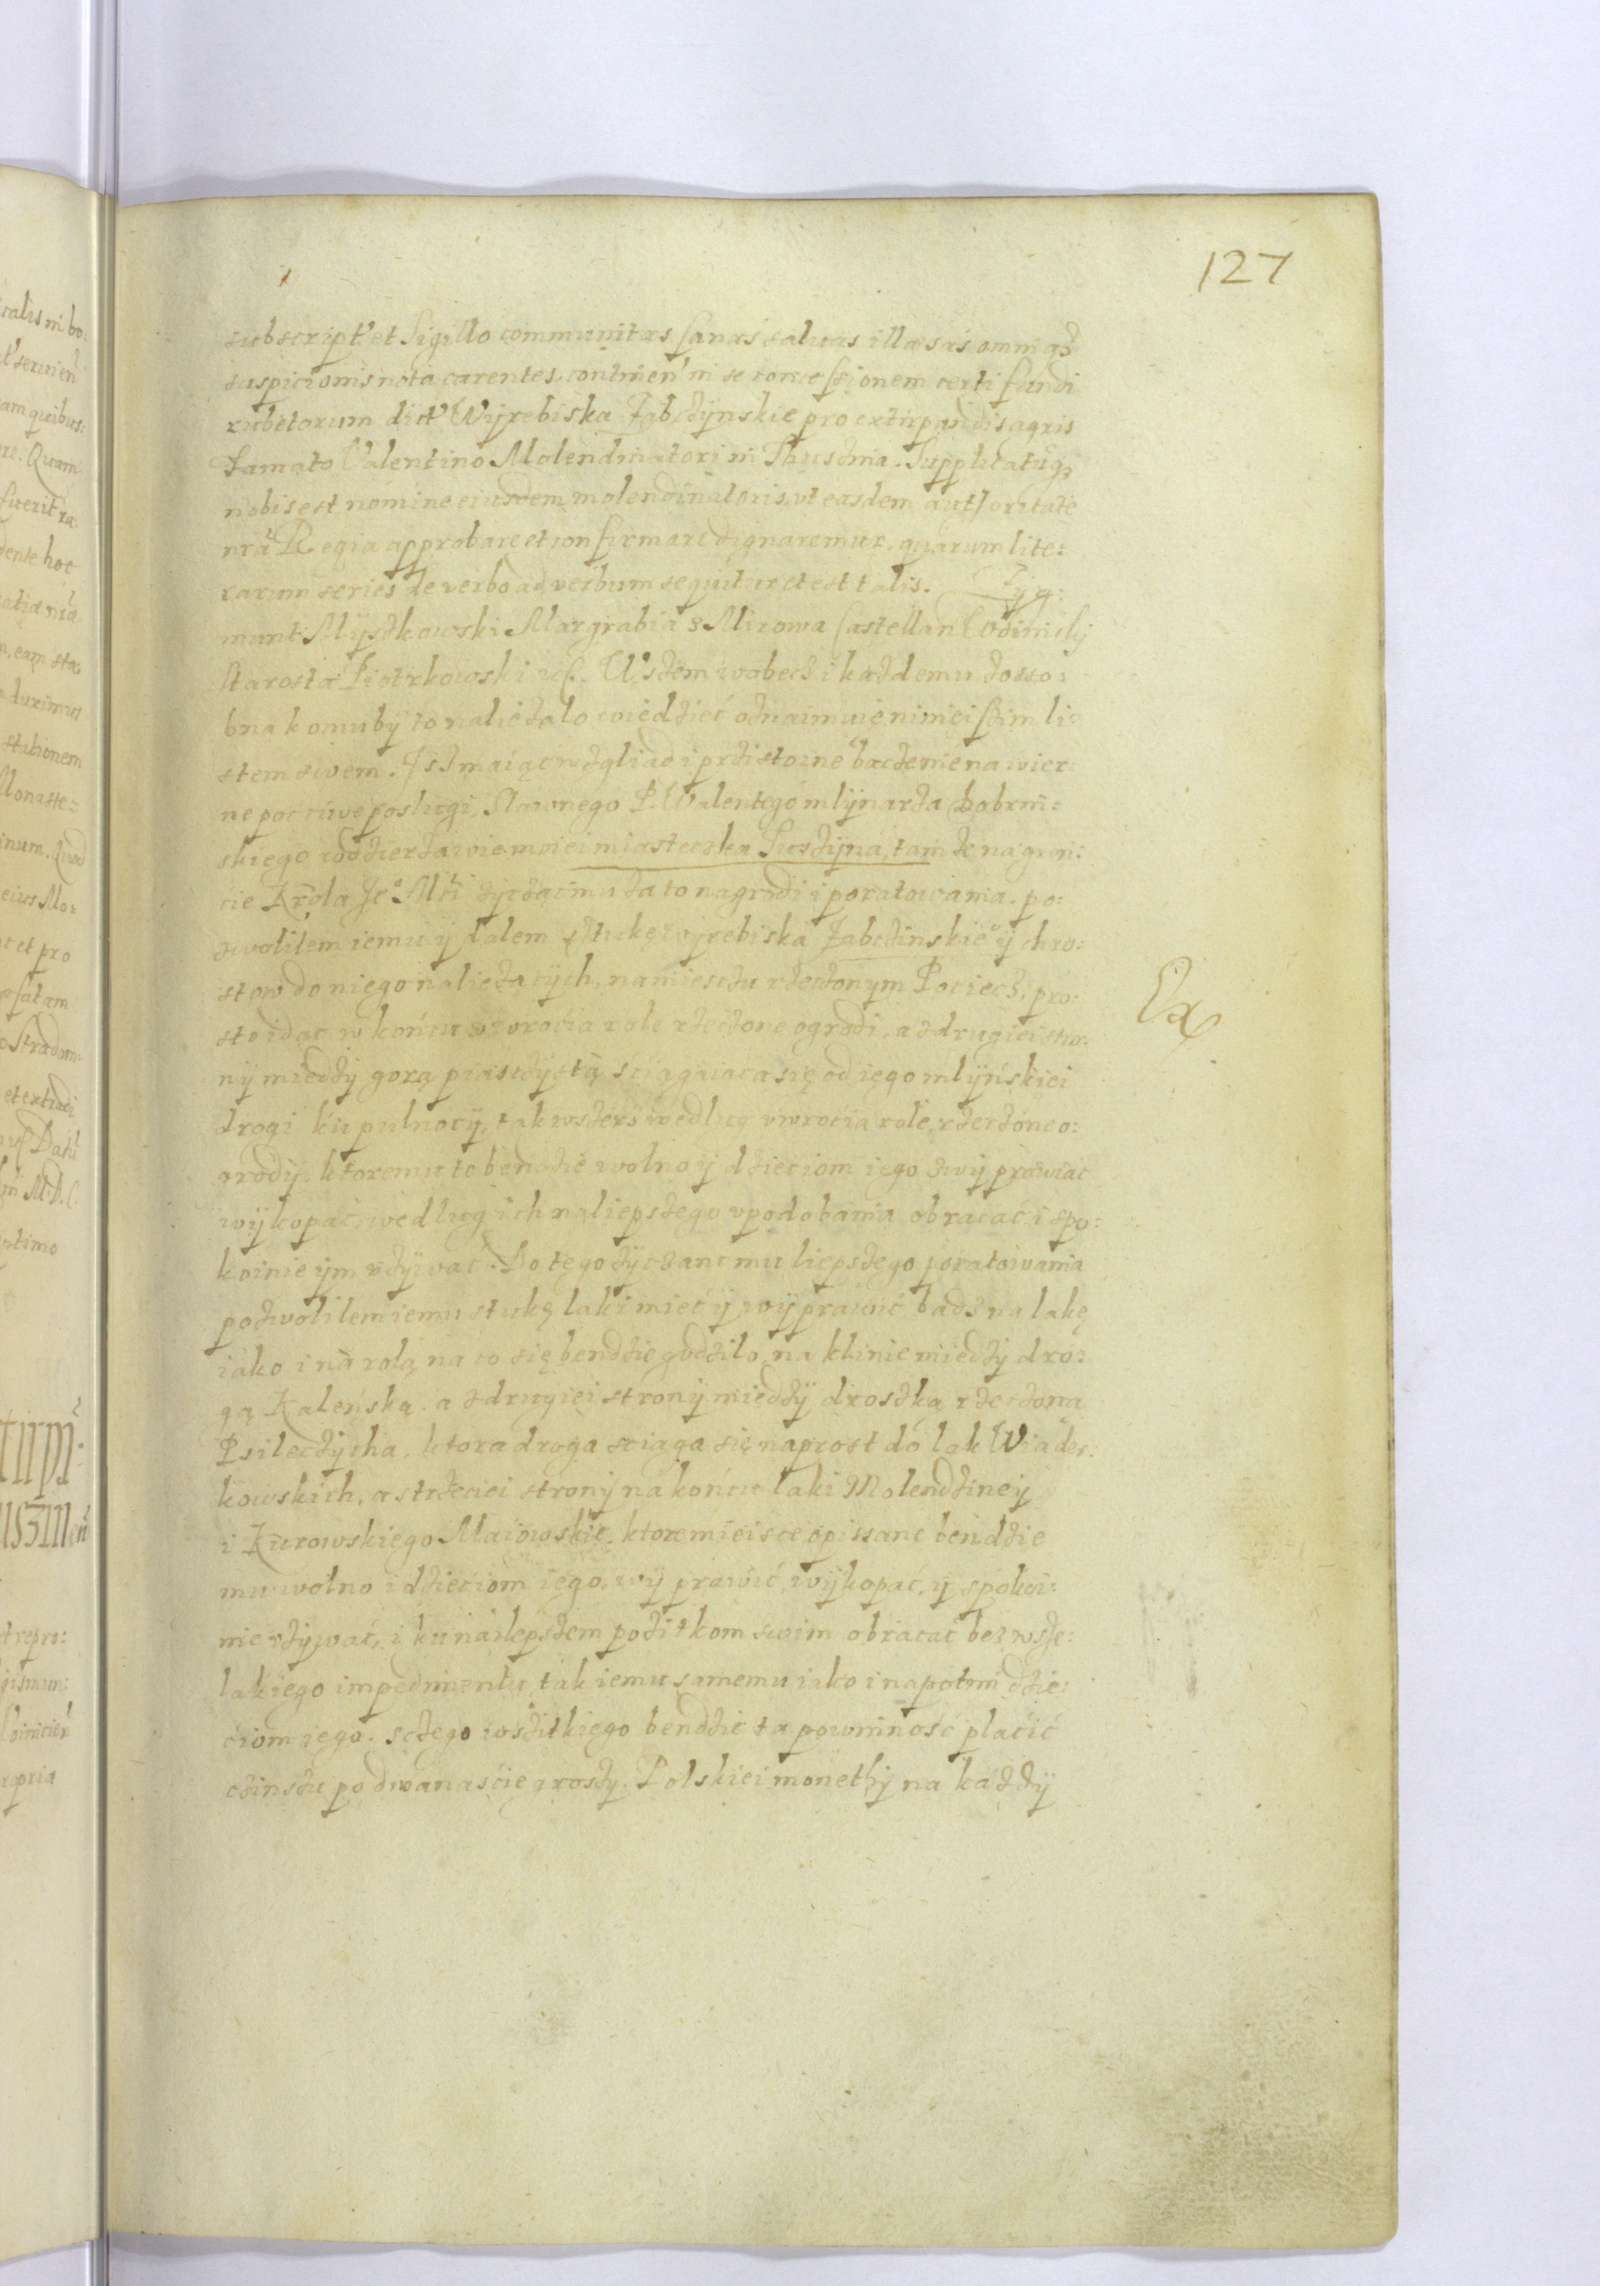 127
subscript' et Sigillo communitas sanas saluas illaesas omniq3
suspicionis nota carentes, continen' in se concessionem certi fundi
rubetorum dict' Wyrebiska Zabczynskie pro extirpandis agris
famato Valentino Molendinatori in Thuszina. Supplicatuq3
nobis est nomine eiusdem molendinatoris, vt easdem authoritate
nra Regia approbare et confirmare dignaremur, quarum lite:
rarum series de verbo ad verbum sequitur et est talis. Zyg:
munt Myszkowski Margrabia z Mirowa Castellan Woinicky
starosta Piotrkowski ief. Wszem wobecz i kazdemu zosso:
bna komu by to nalezalo wiedzieć oznaimuie nimieiszim li:
stem swem. Isz maiąc wzgliad i przistoine baczenie na wier:
ne poczciwe poslugi Slawnego P. Walentego mlynarza dobrzin:
skiego w dzierzawie moiei miasteczka Tuszyna, tamze na grun:
cie Krola Je° Mći zyczącmu za to nagrodi i poratowania. po:
zwolilem iemu y dalem sztukę wyrebiska Zabczinskie° y chro:
stow do niego nalezacych, na miesczu rzeczonym Pociecz, pro:
sto idąc w końcu vwrocia role rzeczone ogrodi, a z drugiei stro:
ny miedzy gorą piasczystą sciągaiaca się od iego mlynskiei
drogi ku pulnocy, tak wszerz wedlug vwrocia role, rzeczone o:
grody. ktoremu to bendzie wolno y dzieciom iego zwyprawiac
wykopać, wedlug ich naliepszego vpodobania obracać i spo:
koinie ym vzywac. Do tego zyczancmu liepszego poratowania
pozwolilem iemu stukę laki mieć y wyprawić bądz na lakę
iako i na rolą na co się bendzie godzilo, na klinie miedzy dro:
gą Kaleńską. a z drugiei strony miedzy droszką rzeczona
Psileczycha, ktora droga sciaga się naprost do lak Wiades:
kowskich, a strzeciei strony na końcu laki Molendziney
i Kurowskiego Maiowskie, ktore mieisce opissane bendzie
mu wolno i dzieciom iego, wyprawić, wykopac, y spokoi:
nie vzywać, i ku nailepszem pozitkom swim obracac bez wsze:
lakiego impedimentu, tak iemu samemu iako i napotim dzie:
ciom iego. sczego wszitkiego bendzie ta powinność placić
czinszu po dwanascie groszy Polskiei monethy na kazdy